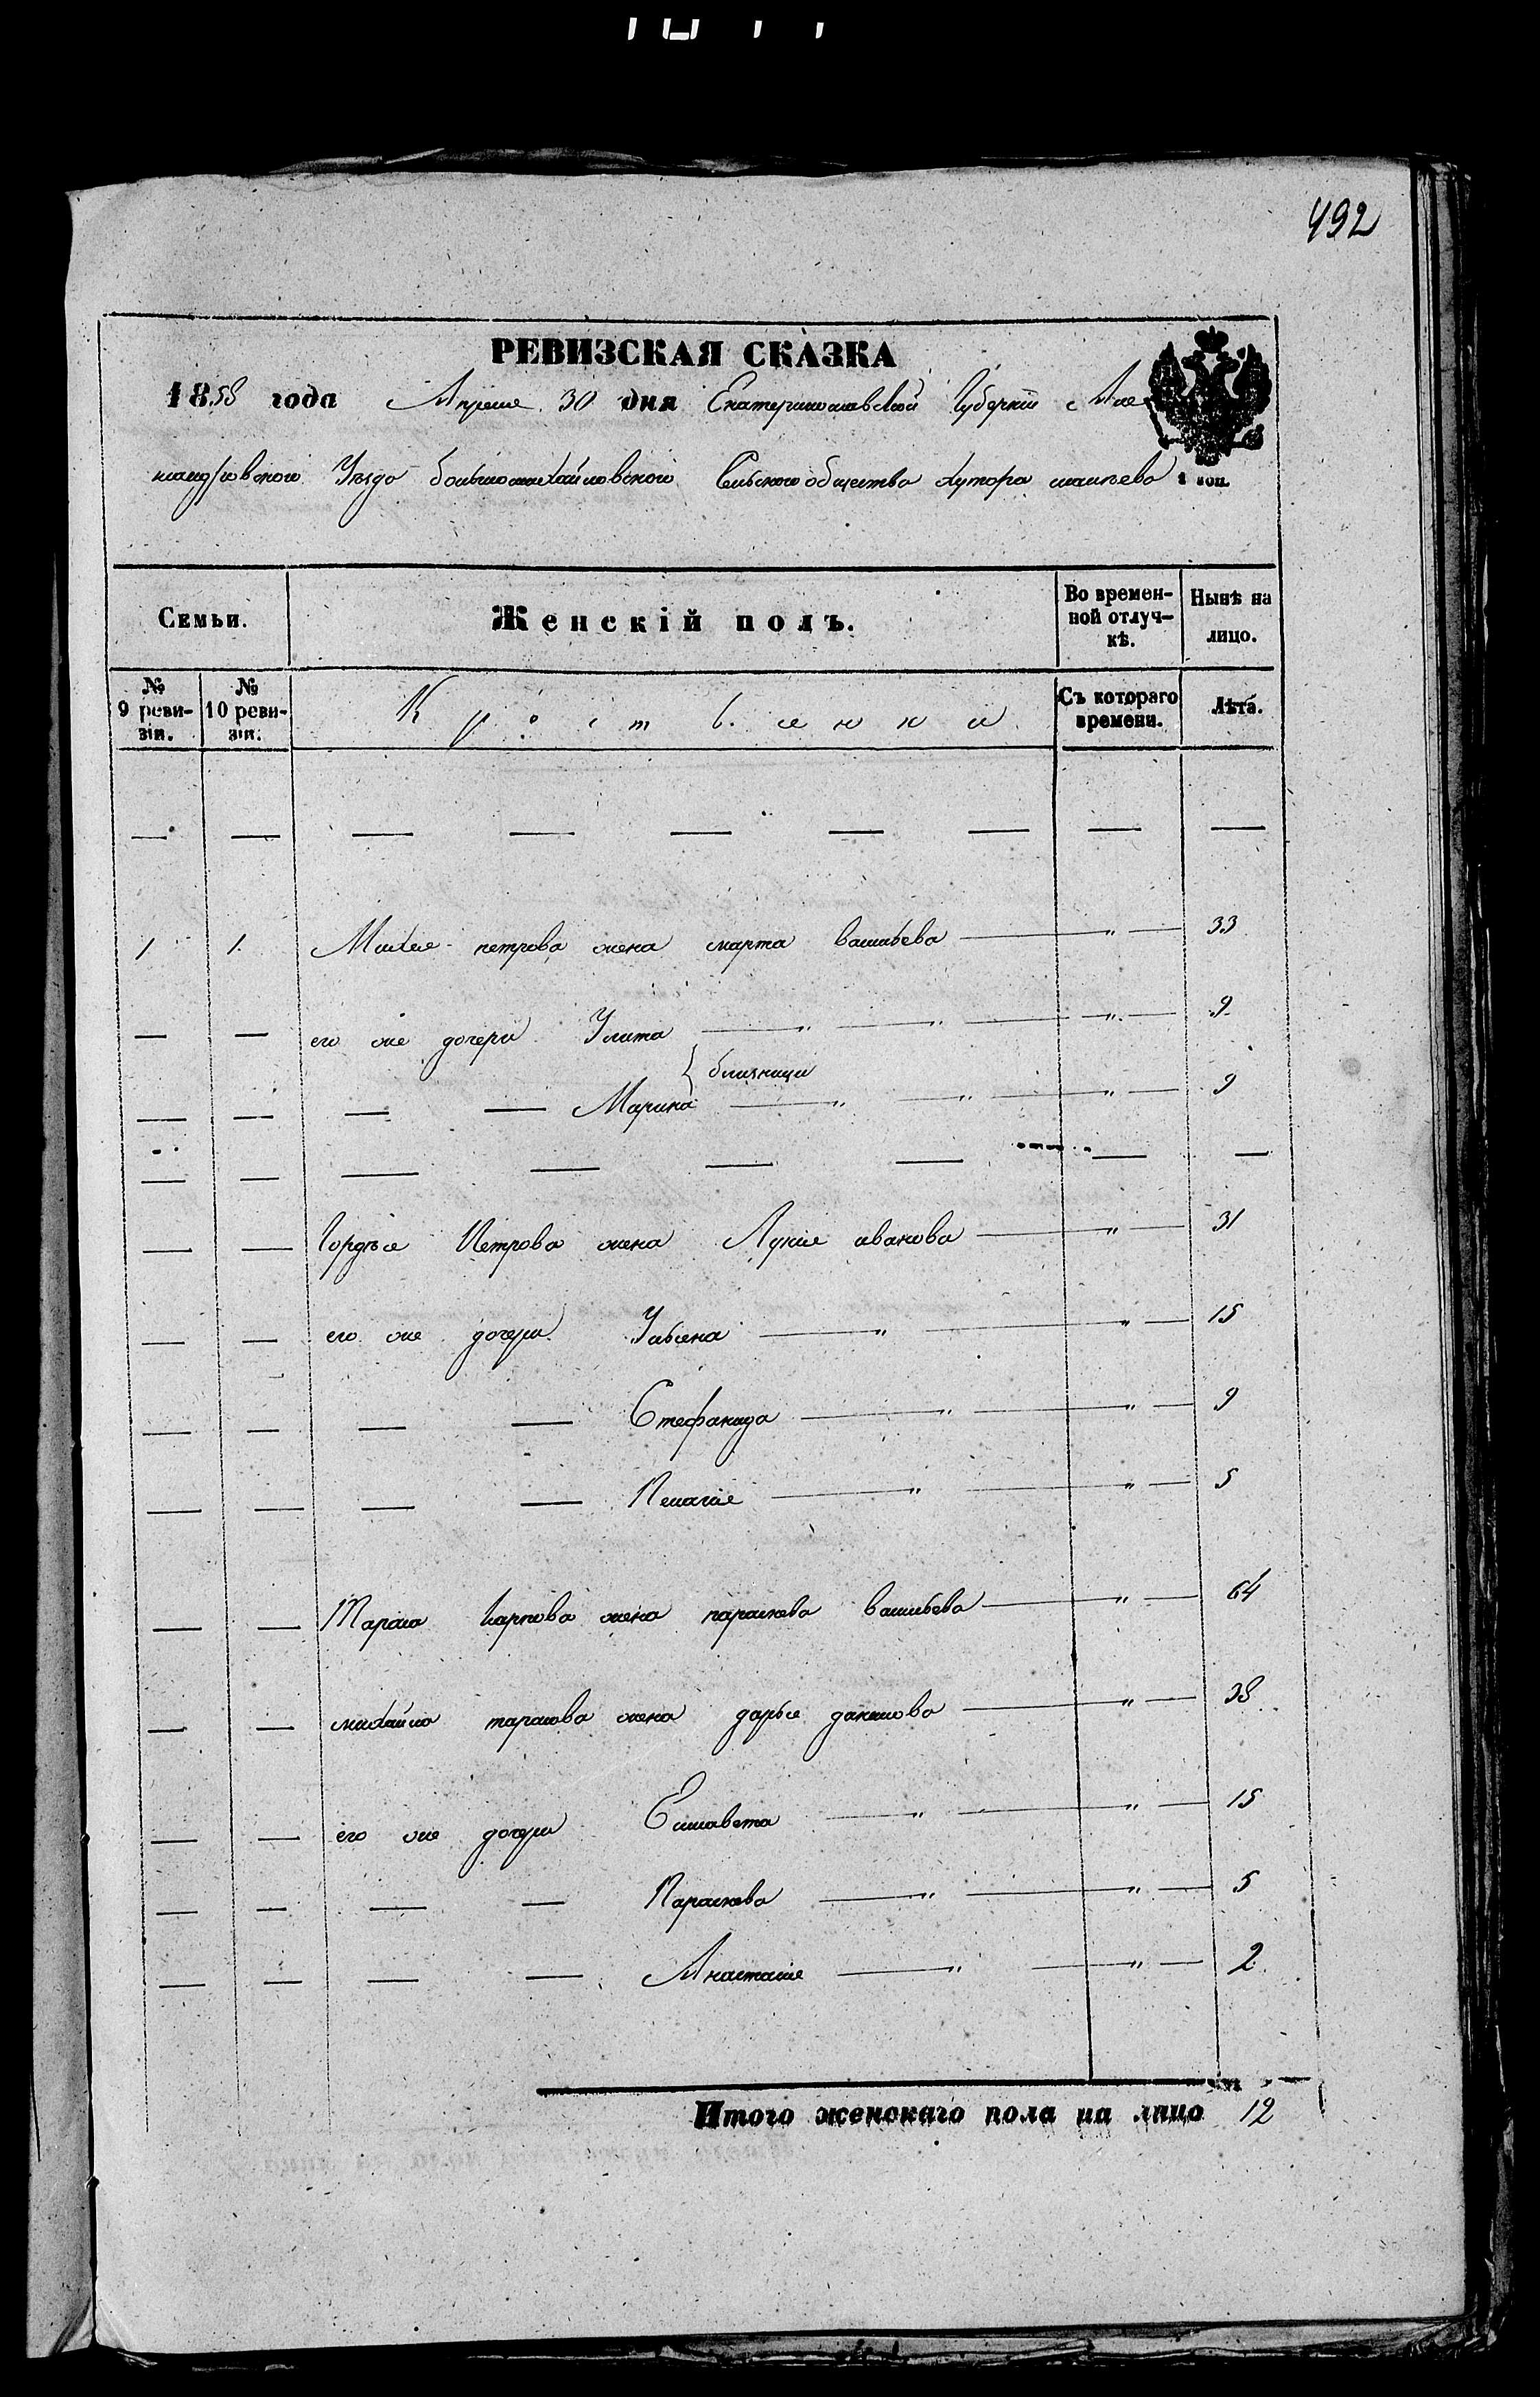 492
РЕВИЗСКАЯ СКАЗКА
1858 года Апреля 30 дня Екатеринославской Губернии Але
ксандровского Уезда большомихайловского Сельского общества хутора
Семьи. Женскій полъ. Во времен- Нынѣ на
ной отлуч- лицо.
кѣ.
№ № Крестьянки Съ котораго Лѣта.
9 реви- 10 реви- времени.
зіи. зіи.
— — — — — — — — —
1 1. Михея петрова жена марта васильева — " — 33
— — его же дочери Улита — " — " — " — 9
{ близници
— — — — Марина — " — " — " — 9
— — — — — — — —
— — Гордѣя Петрова жена Лукія иванова — " — 31
— — его же дочери Ульяна — " — " — 15
— — — — Стефанида — " — " — 9
— — — — Пелагія — " — " — 5
— — Тараса карпова жена параскева васильева — " — 64
— — михайла тарасова жена дарья данилова — " — 38
— — его же дочери Елисавета — " — " — 15
— — — — Параскева — " — " — 5
— — — — Анастасія — " — " — 2
Итого женскаго пола на лицо 12